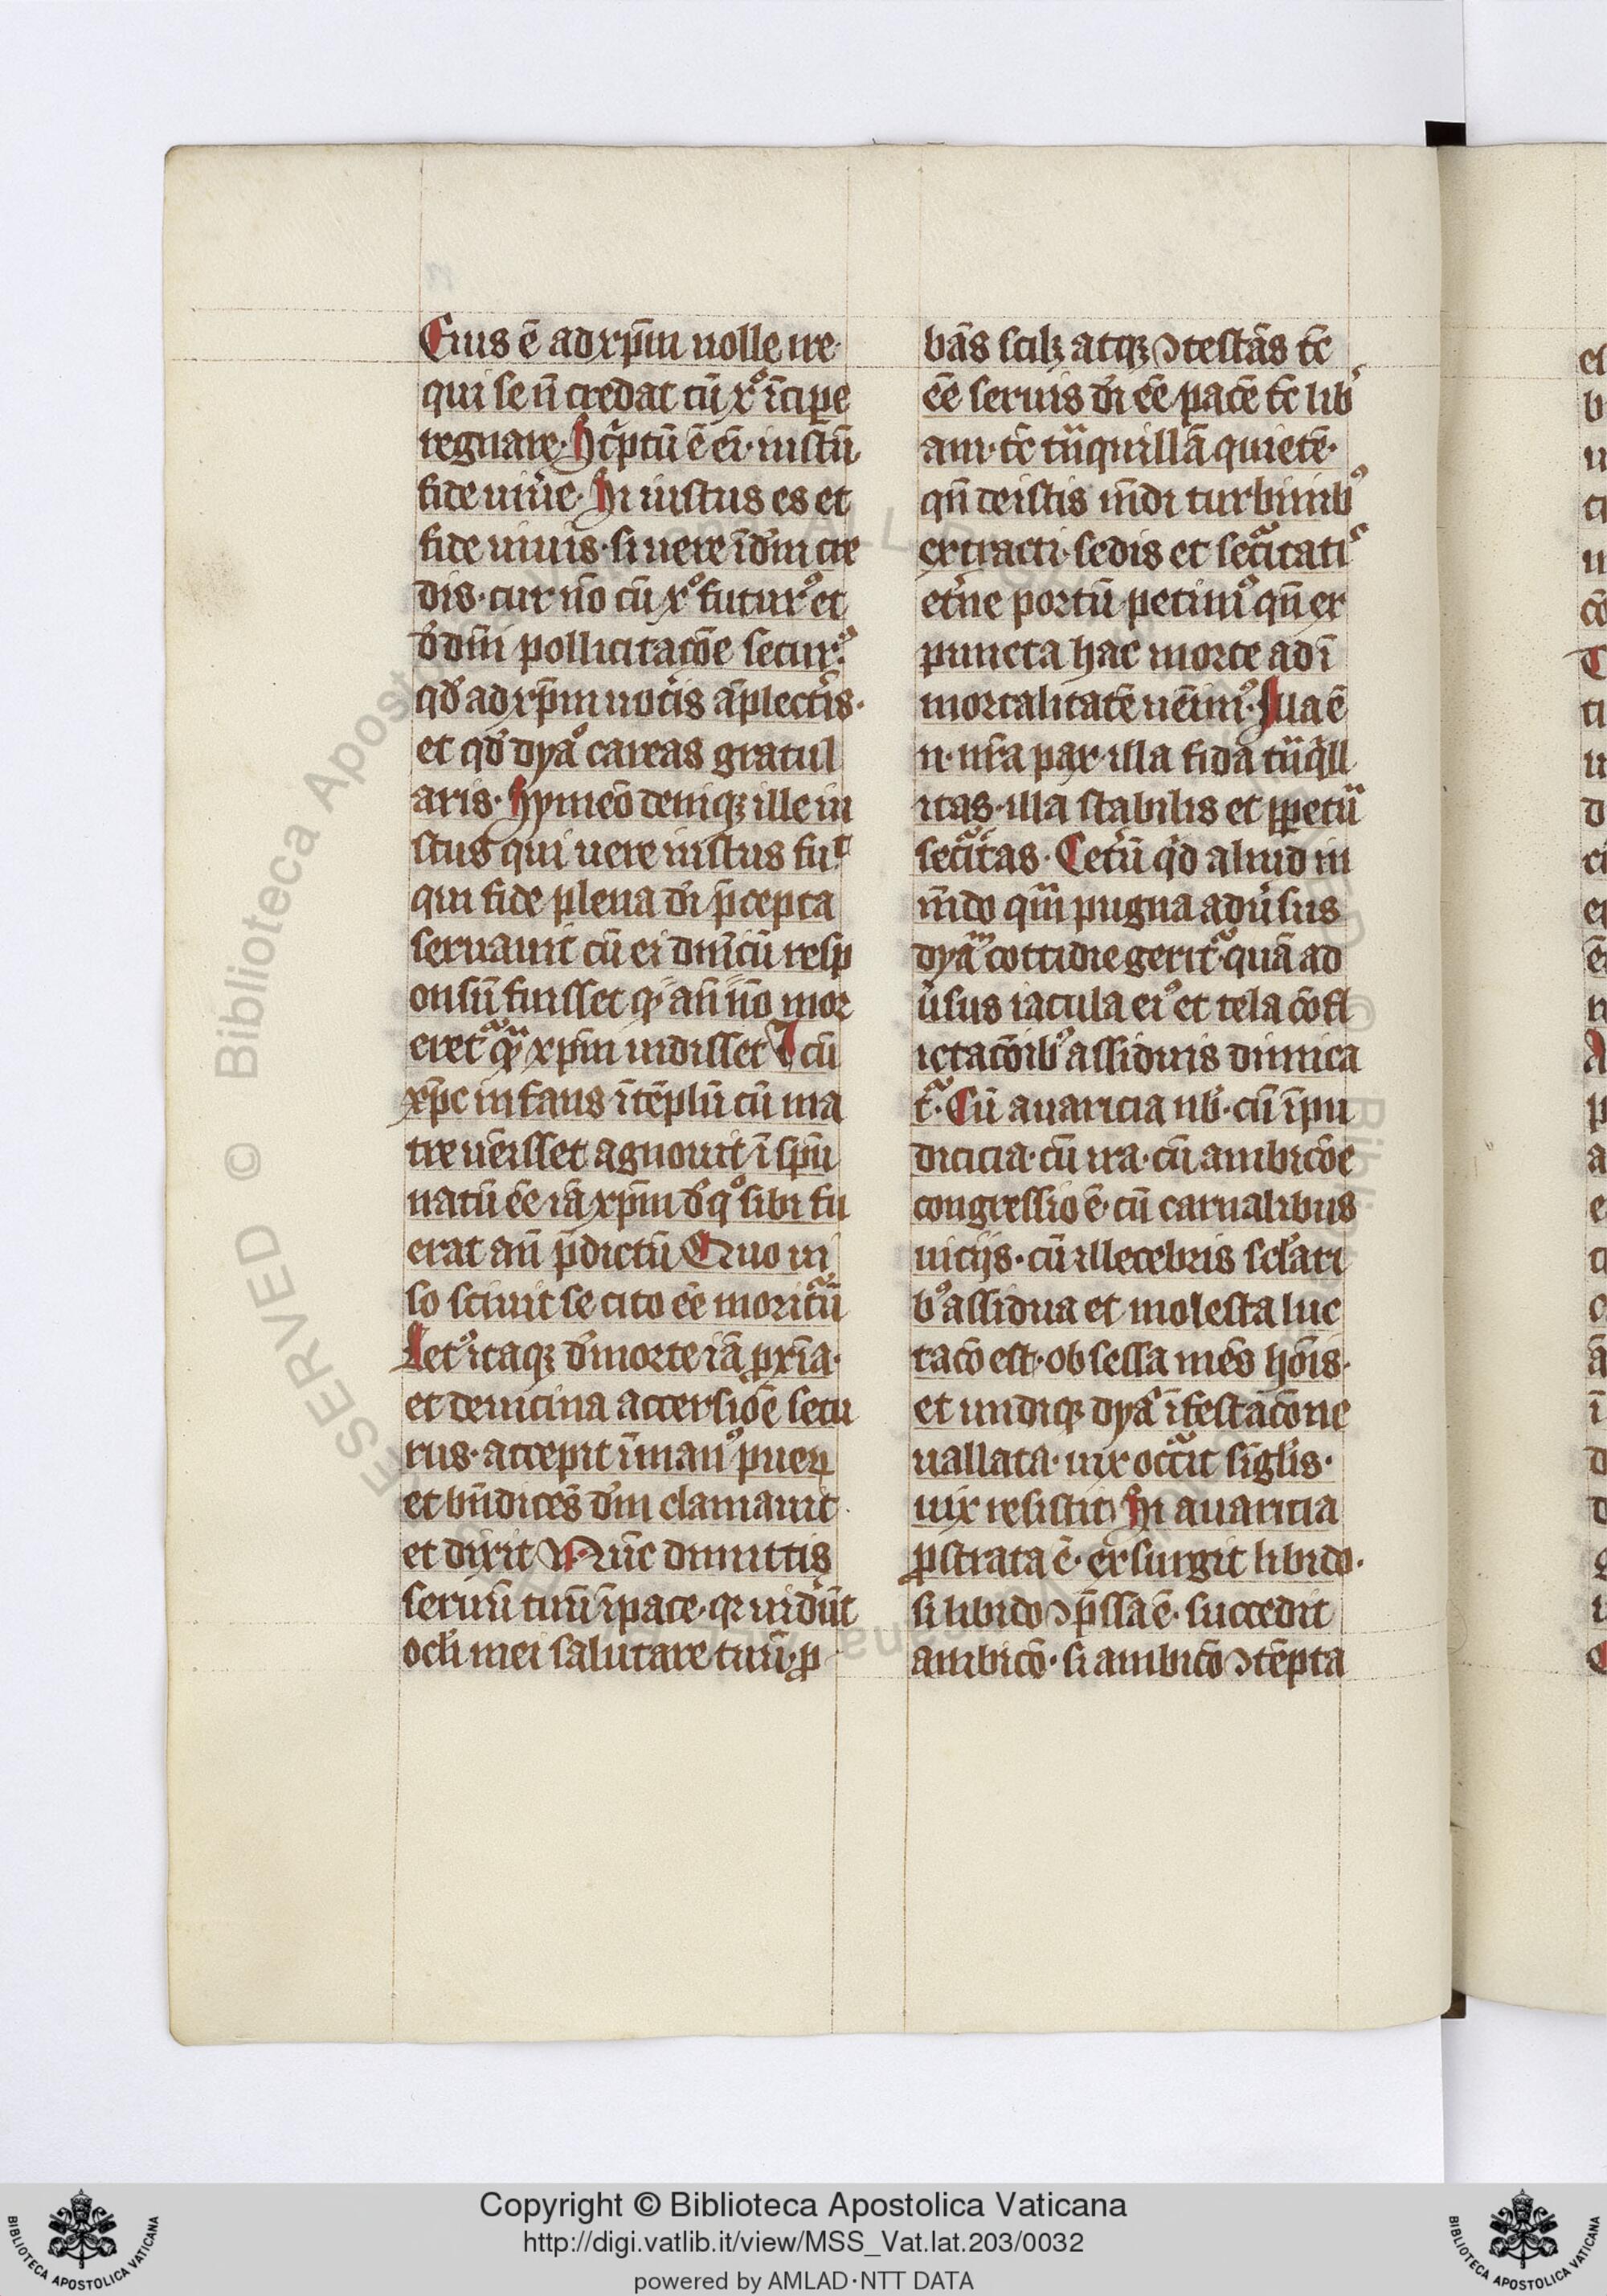 Eius ē ad xp̄m nolle ire·
qui se n̄ credat cū x° īcipe
regnare· Sc̄ptū ē ei· iustū
fide uiue͛· Si iustus es et
fide uiuis· si uere ī dm̄ cre
dis· cur nō cū x° futurꝰ et
d̓ dn̄i pollicitac̄oe securꝰ·
qd̓ ad xp̄m uoc͛is āplect͛is·
et qd̓ dya° careas gratul
aris· Symeō deniqꝫ ille iu
stus qui uere iustus fuᵗ
qui fide plena di̓ p̄cepta
seruauit cū ei diuīcū resp
onsū fuisset qꝛ an̄ nō mor
eret᷑ qͣ̄ xp̄m uidisset ⁊ cū
xp̄c infans ī tēplū cū ma
tre uēisset agnouit ī sp̄u
natū ēe iā xp̄m d̓ q° sibi fu
erat an̄ p̄dictū Quo ui
so sciuit se cito ēe moritͧū
Letꝰ itaqꝫ d̓ morte iā ꝓxīa·
et deuicina accersiōe secu
rus· accepit ī manꝰ pueꝝ
et bn̄dicēs dm̄ clamauit
et dixit Nūc dimittis
seruū tuū ī pace· qꝛ uid̓ūt
ocl̓i mei salutare tuū· ꝓ
bās scilꝫ atqꝫ ↄtestās tc̄
ēe seruis di̓ ēe pacē tc̄ lib̓
am· tc̄ tͣ̄quillā quietē·
qn̄ deistis mū̄di turbinibꝰ
extracti· sedis et sec͛itatis
et͛ne portū petimꝰ qn̄ ex
puncta hac morte ad ī
mortalitatē uēimꝰ· Illa ē
n· nr̄a pax· illa fida tͣ̄qͥll
itas· illa stabilis et ꝑpetͣ̄
sec͛itas· Cet͛ū qͥd aliud in
mū̄do qͣ̄m pugna adu͛sus
dyaᵐ cottidie gerit᷑· quā ad
u͛sus iacula eiꝰ et tela cōfl
ictac̄oibꝰ assiduis dimica
t᷑· Cū auaricia nb̓· cū īpu
dicicia· cū ira· cū ambic̄oe
congressio ē· cū carnalibus
uicijs· cū illecebris scl̓ari
bꝰ assidua et molesta luc
tac̄o est· obsessa mēs hōis·
et undiqꝫ dya° īfestac̄one
uallata· uix occͬrit sīgl̓is·
uix resistit Si auaricia
ꝓstrata ē· exsurgit libido·
si libido ↄp̄ssa ē· succedit
ambic̄o· si ambic̄o ↄtēpta
Copyright © Biblioteca Apostolica Vaticana
http://digi.vatlib.it/view/MSS_Vat.lat.203/0032
powered by AMLAD·NTT DATA